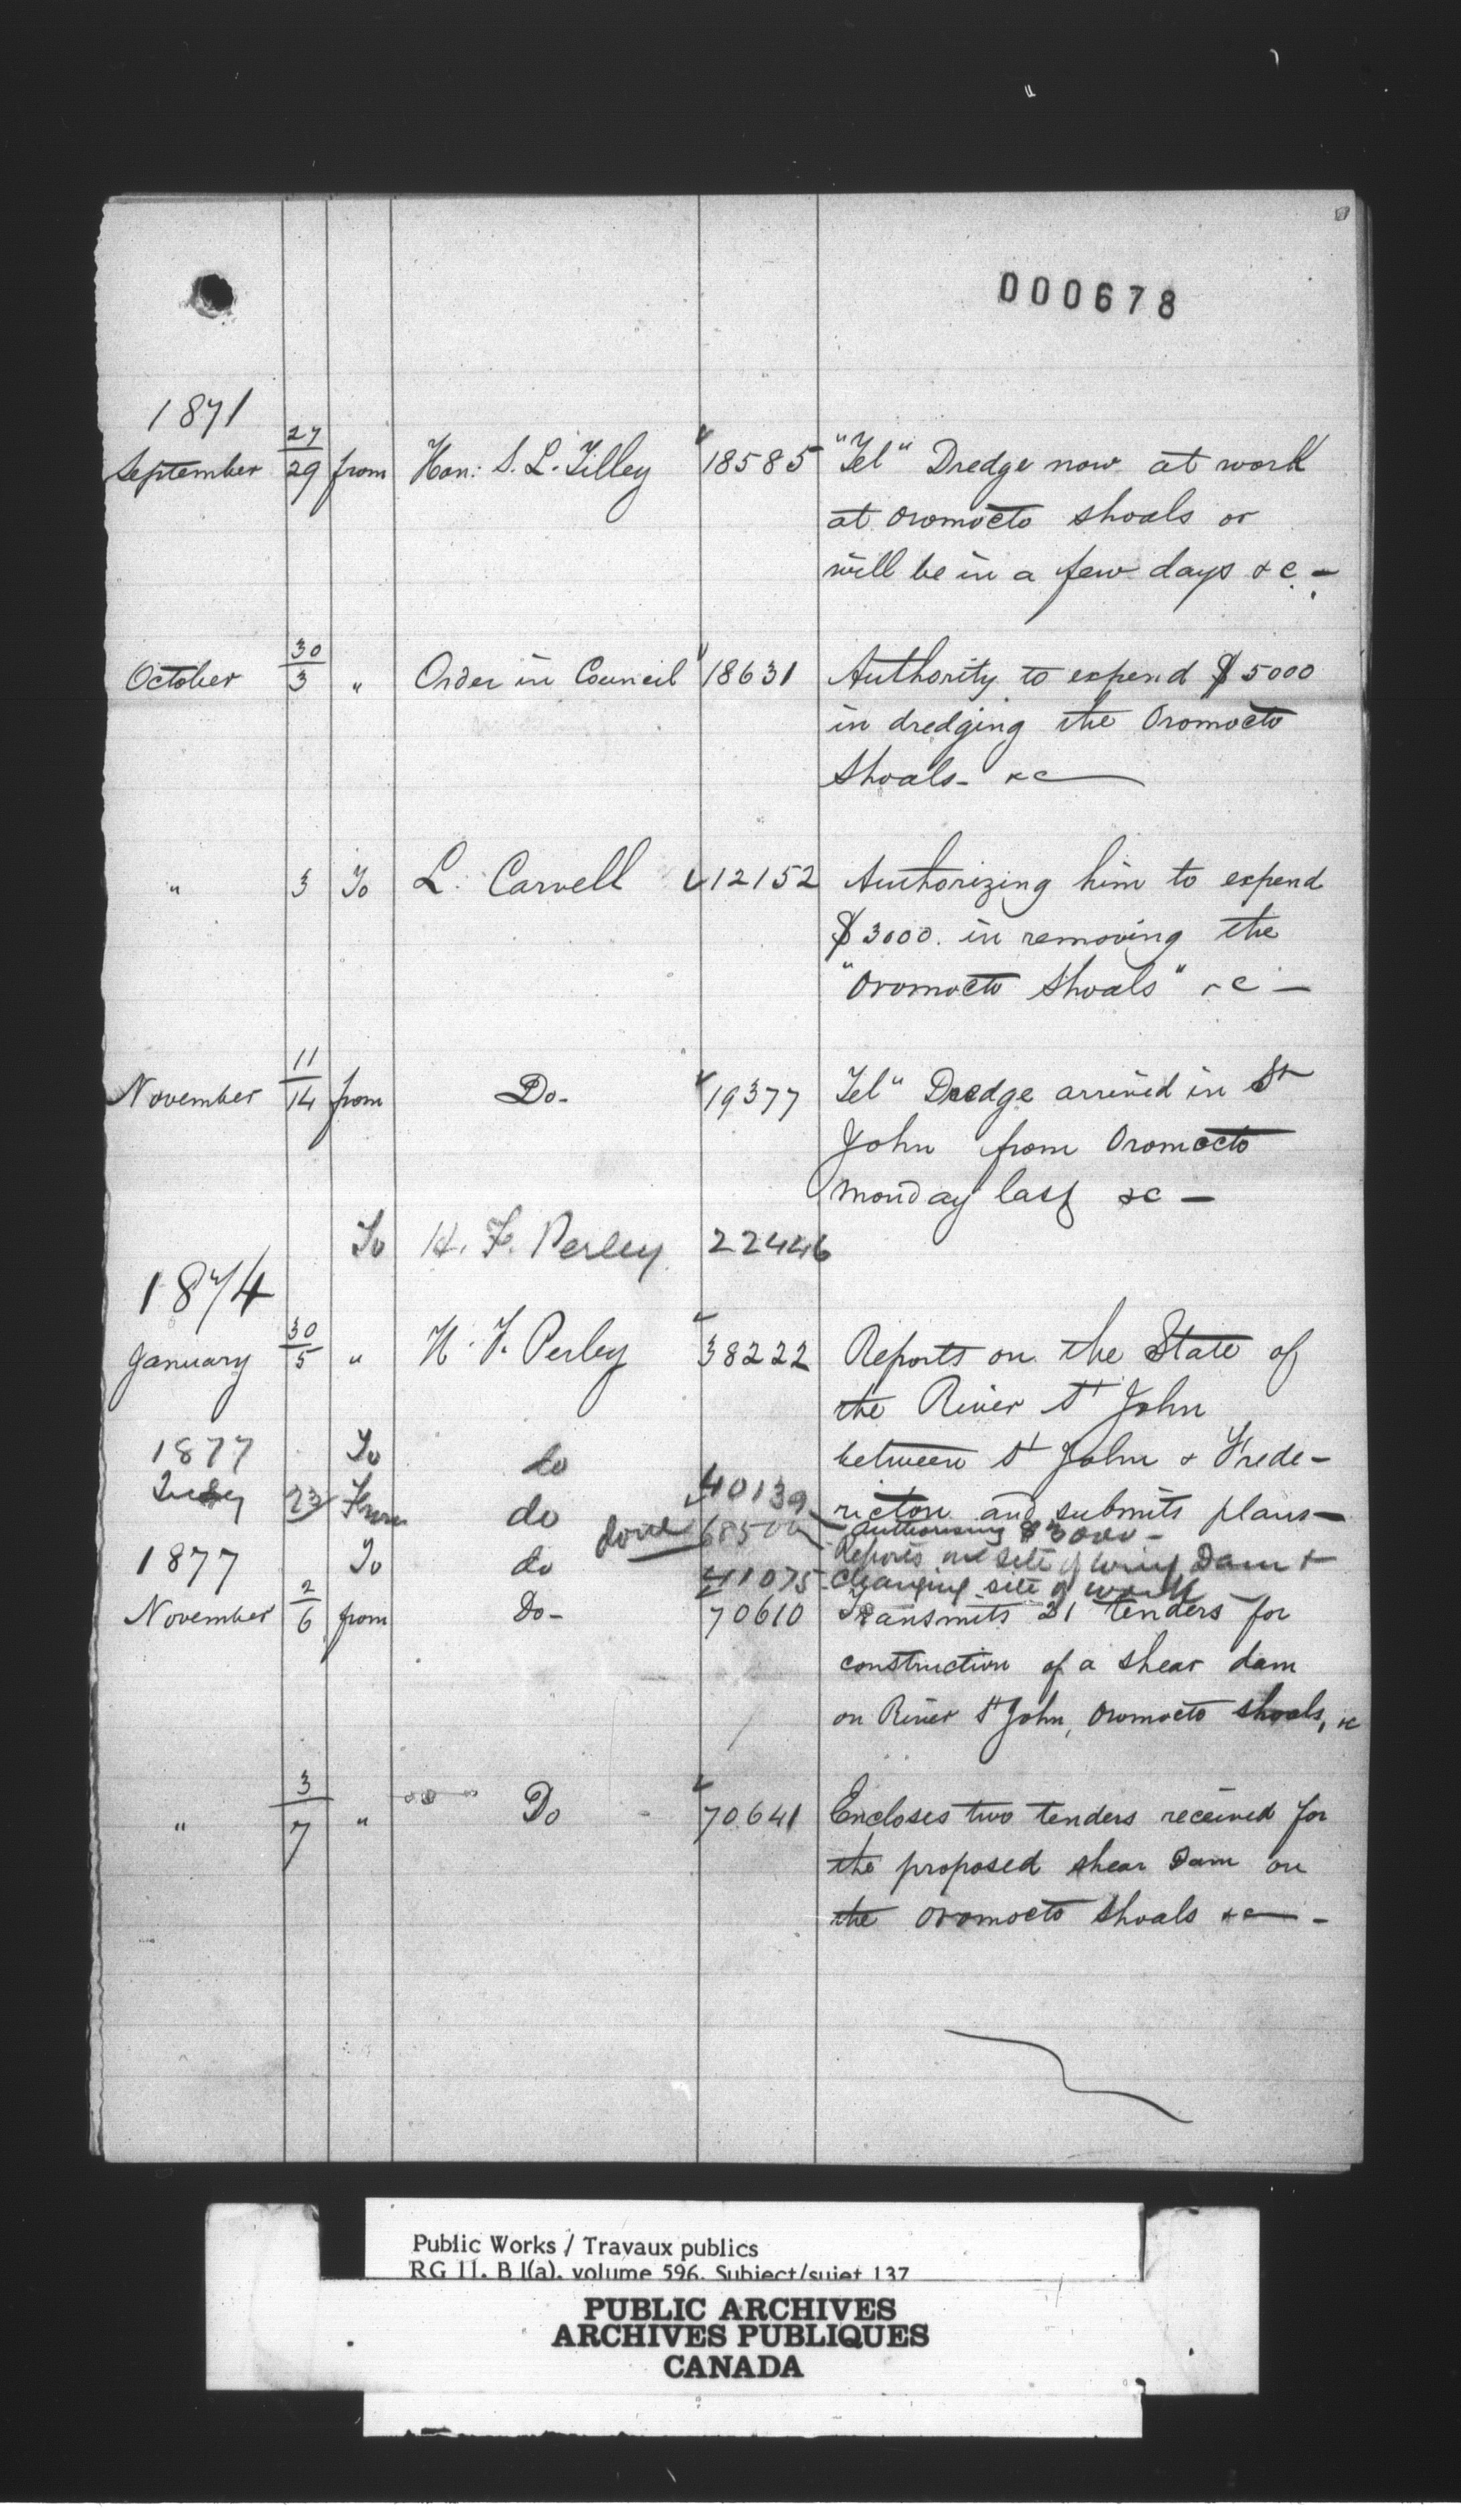 000678
1871
September 27/29 from Hon: S. L. Tilley 18585 "Tel" Dredge now at work
at Oromocto shoals or
will be in a few days &c. -
October 30/3 " Order in Council 18631 Authority to expend $5000
in dredging the Oromocto
Shoals - &c
" 3 To L. Carvell 12152 Authorizing him to expend
$3000. in removing the
"Oromocto Shoals" &c -
November 11/14 from Do- 19377 Tel" Dredge arrived in St
John from Oromocto
Monday last &c -
To H. F. Perley 22446
1874
January 30/5 " H. F. Perley 38222 Reports on the State of
the River St John
1877 To do 40139 between St John & Frede-
July 23 From do done 685 ricton and submits plans -
Authorising $3000 -
Reports on site of wing Dam &
1877 To do 41075 Changing site of work
November 2/6 from Do- 70610 Transmits 21 tenders for
construction of a shear dam
on River St John, Oromocto shoals, &c
" 3/7 " Do 70641 Encloses two tenders received for
the proposed shear Dam on
the Oromocto Shoals &c -
Public Works / Travaux publics
RG 11, B 1(a), volume 596, Subject/sujet 137
PUBLIC ARCHIVES
ARCHIVES PUBLIQUES
CANADA